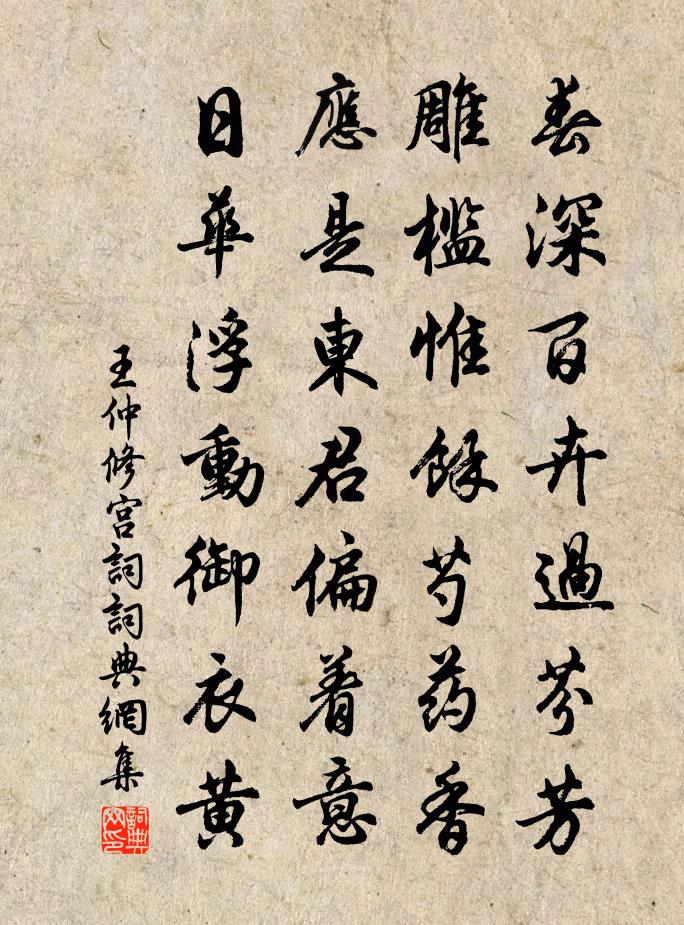 春深百卉過芬芳
雕檻惟餘芍药香
應是東君偏着意
日華浮動御衣黄
王仲修宮詞詞典網集
詞典网印